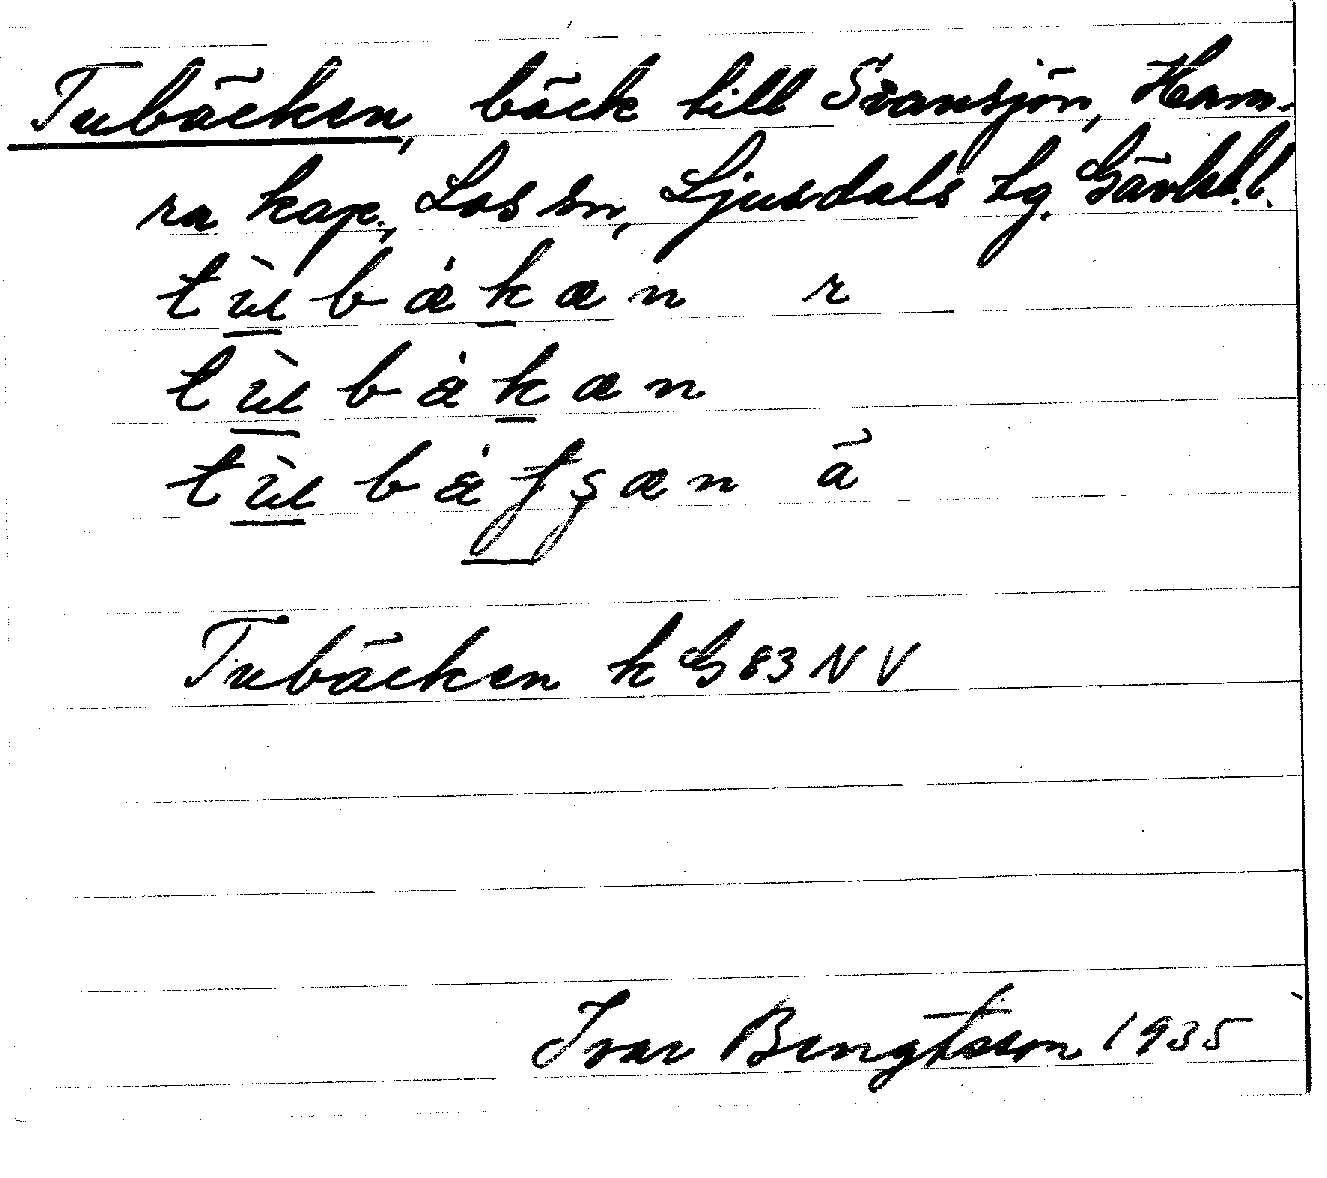 Tubäcken, bäck till Svansjön, Ham-
ra kap., Los sn, Ljusdals tg. Gävleb. l.
tùbækæn r
tùbækæn
tùbæʃʂæn ä
Tubäcken k G 83 NV
Ivar Bengtsson 1935